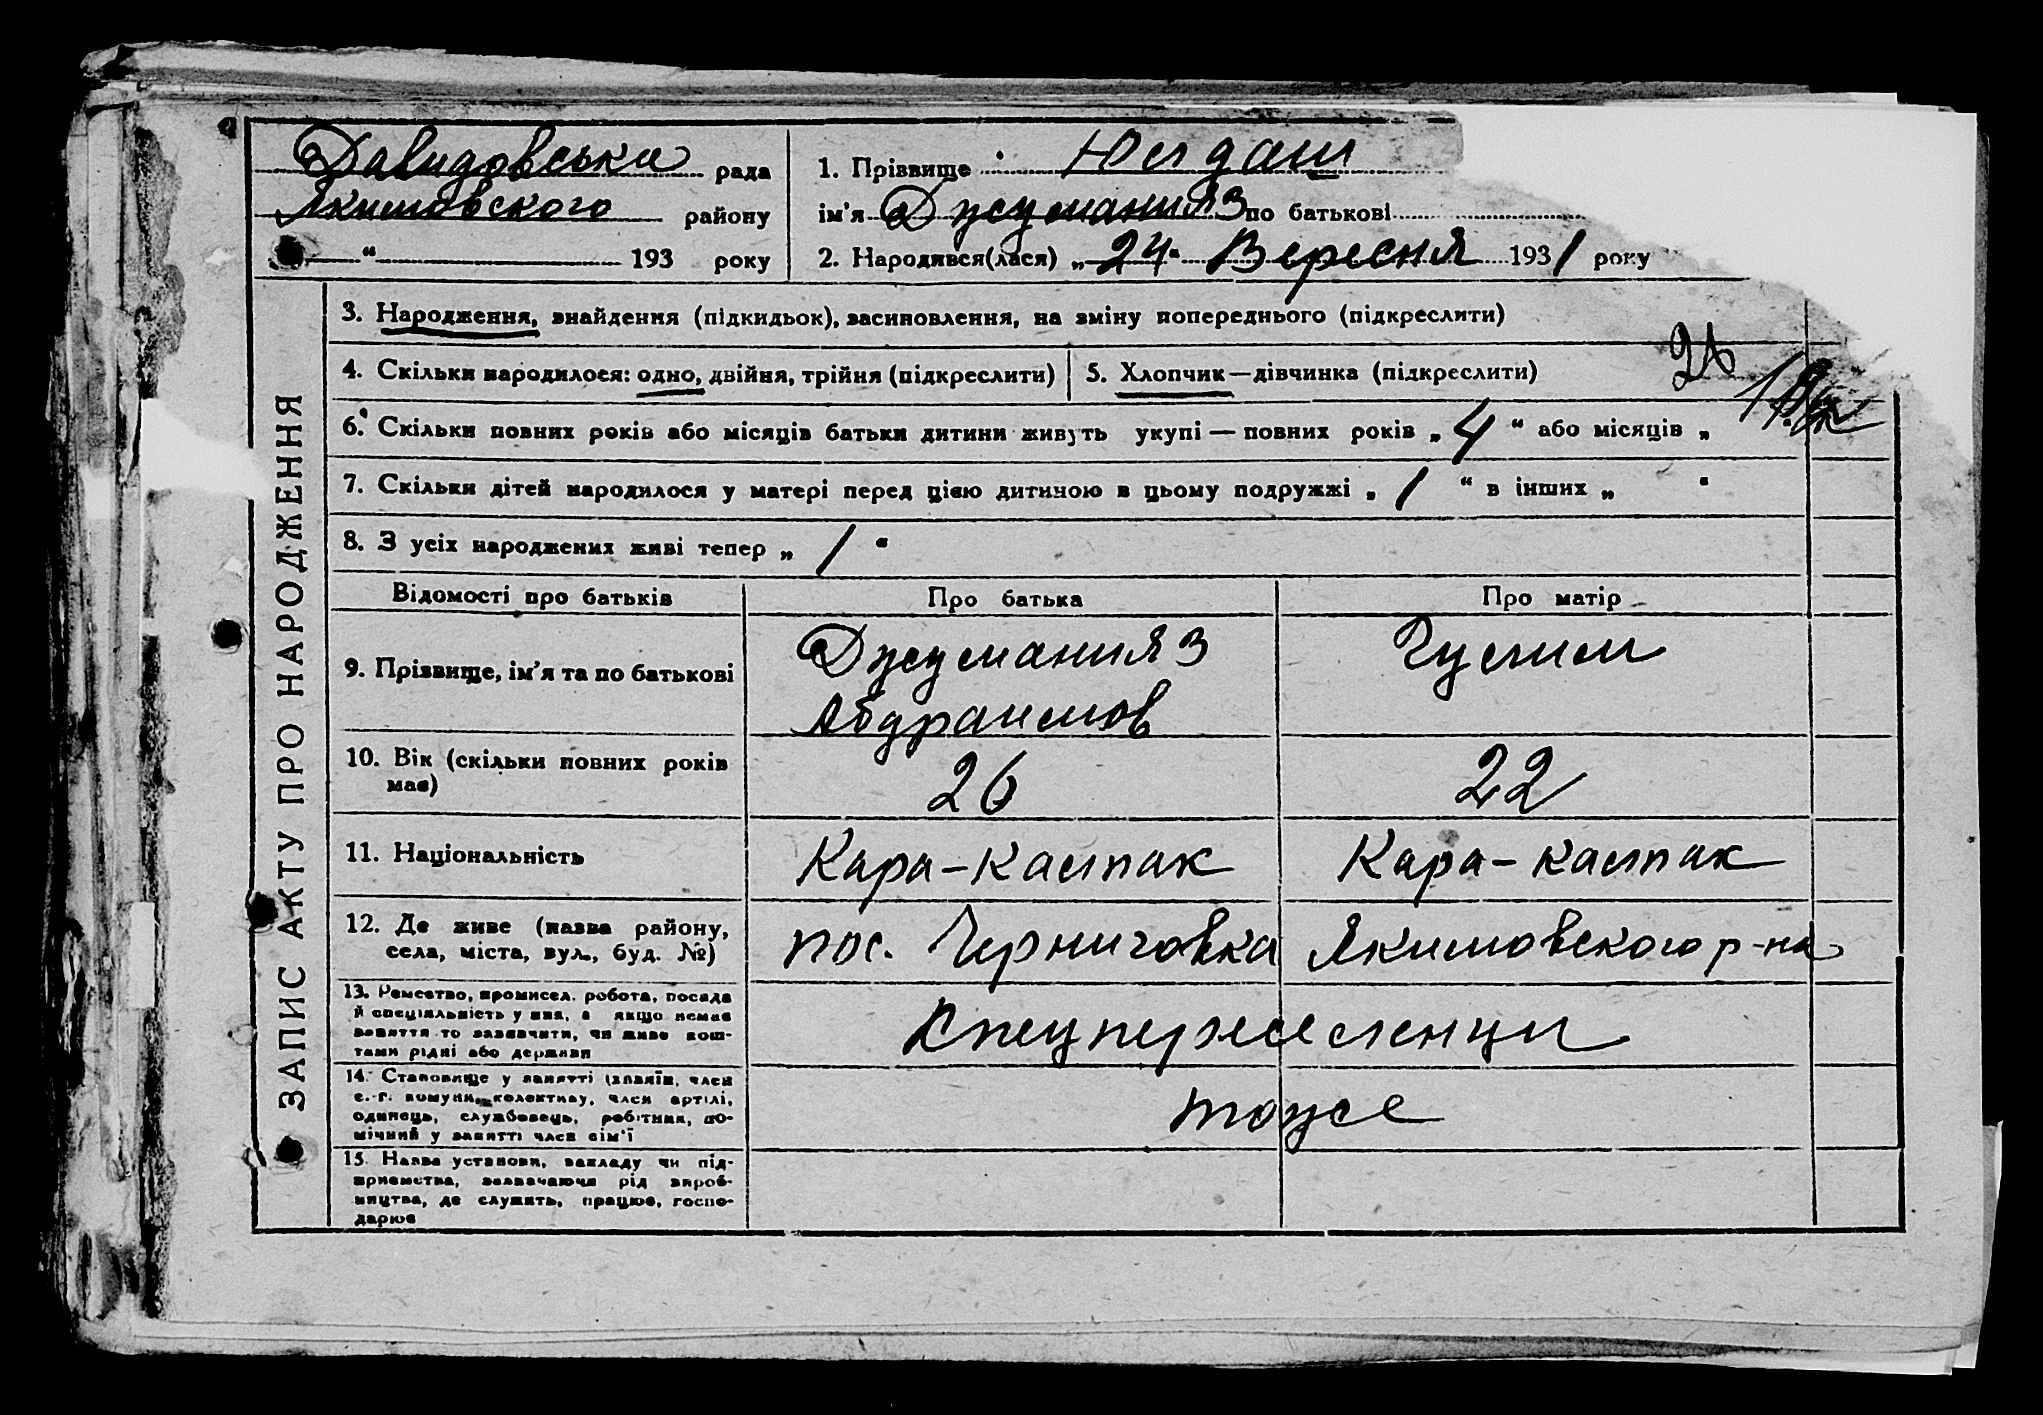 Давидовська рада
Якимовского району
“ 193 року
1. Прізвище Юлдаш
ім'я Джуманияз по батькові
2. Народився(лася) „24“ Вересня 1931 року
ЗАПИС АКТУ ПРО НАРОДЖЕННЯ
3. Народження, знайдення (підкидьок), засиновлення, на зміну попереднього (підкреслити)
4. Скільки народилося: одно, двійня, трійня (підкреслити)
5. Хлопчик—дівчинка (підкреслити)
6. Скільки повних років або місяців батьки дитини живуть укупі — повних років „4“ або місяців „
7. Скільки дітей народилося у матері перед цією дитиною в цьому подружжі „1“ в інших „ “
8. З усіх народжених живі тепер „1“
Відомості про батьків Про батька Про матір
9. Прізвище, ім'я та по батькові Джуманияз Гулим
Абдраимов
10. Вік (скільки повних років 26 22
має)
11. Національність Кара-Калпак Кара-калпак
12. Де живе (назва району, пос. Черниговка Якимовского р-на
села, міста, вул., буд. №)
13. Ремество, промисел, робота, посада
й спеціяльність у них, а якщо немає
заняття то зазначити, чи живе кош-
тами рідні або держави
Спецпереселенцы
14. Становище у занятті (хазяїн, член
с.-г. комуни, колективу, член артілі,
одинець, службовець, робітник, по-
мічний у занятті член сім'ї
тоже
15. Назва установи, закладу чи під-
приємства, зазначаючи рід вироб-
ництва, де служить, працює, госпо-
дарює